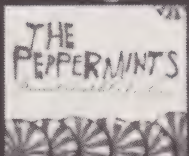 THE
PEPPERMINTS